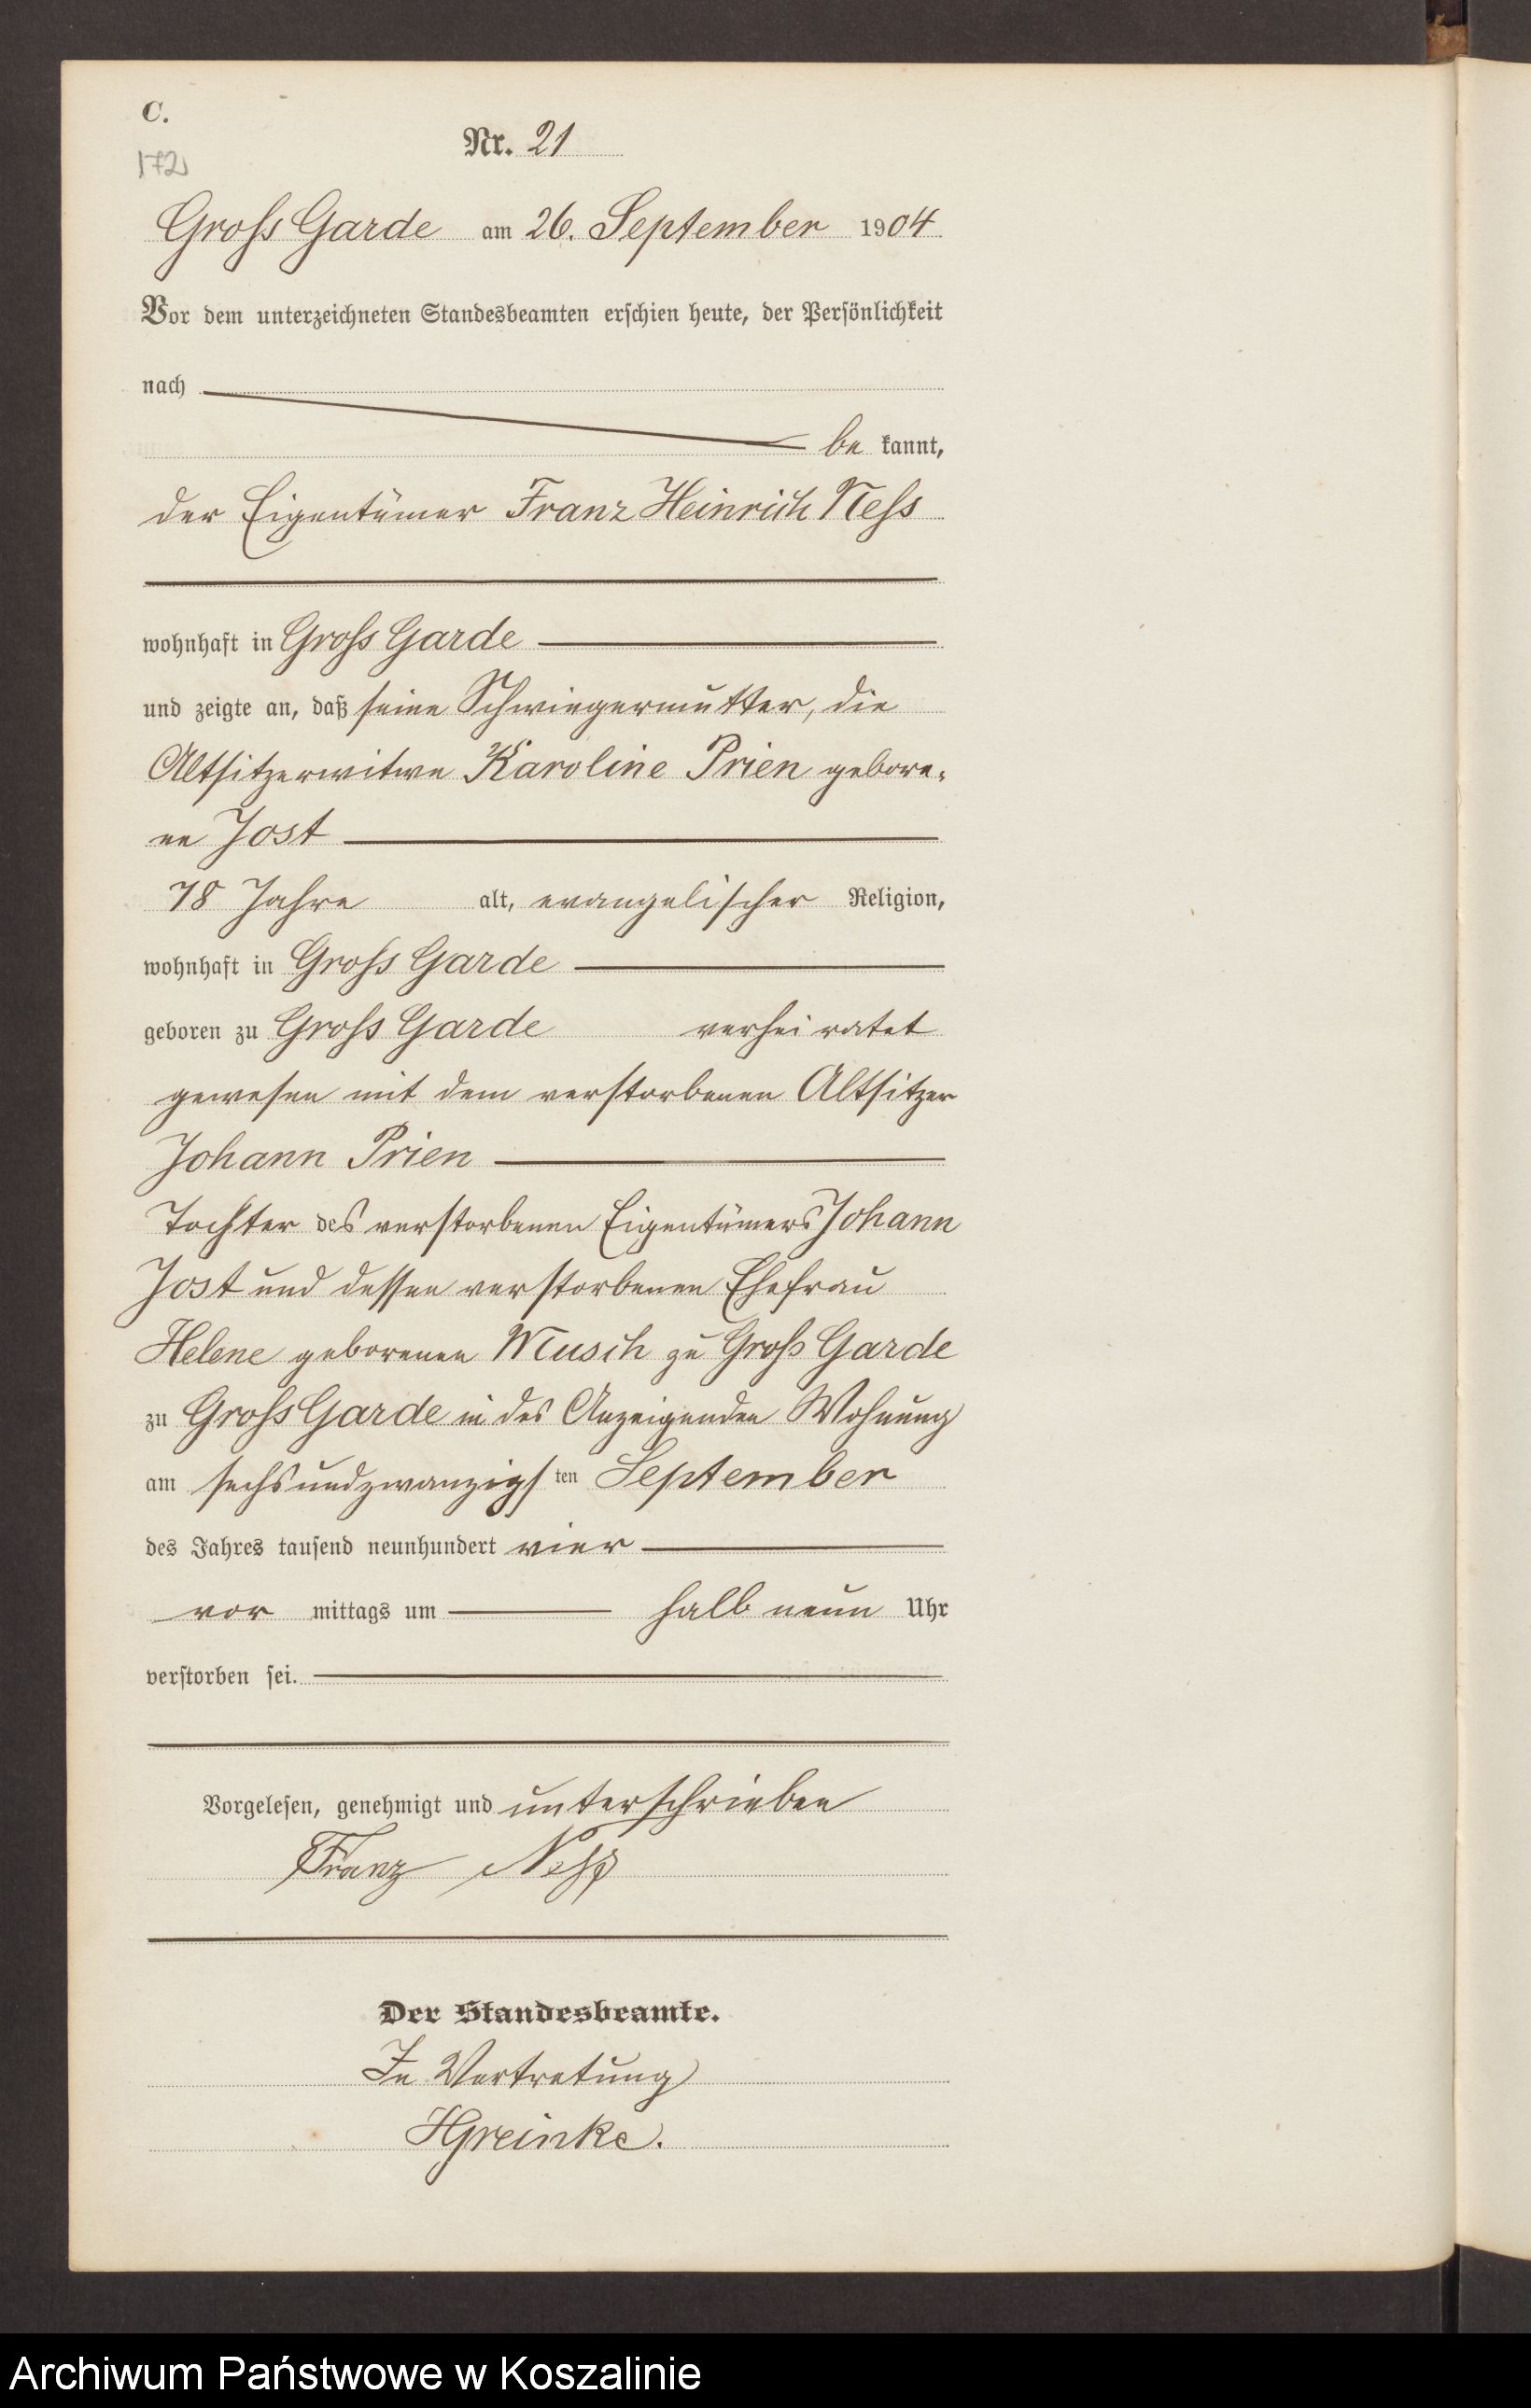 C.
172
Nr. 21
Gross Garde am 26. September 1904
Vor dem unterzeichneten Standesbeamten erschien heute, der Persönlichkeit
nach
be kannt,
der Eigentümer Franz Heinrich Ness
wohnhaft in Gross Garde
und zeigte an, daß seine Schwiegermutter, die
Altsitzerwitwe Karoline Prien gebore-
ne Jost
78 Jahre alt, evangelischer Religion,
wohnhaft in Gross Garde
geboren zu Gross Garde verheiratet
gewesen mit dem verstorbenen Altsitzer
Johann Prien
Tochter des verstorbenen Eigentümers Johann
Jost und dessen verstorbenen Ehefrau
Helene geborenen Musch zu Gross Garde
zu Gross Garde in des Anzeigenden Wohnung
am sechsundzwanzigsten September
des Jahres tausend neunhundert vier
vor mittags um halb neun Uhr
verstorben sei.
Vorgelesen, genehmigt und unterschrieben
Franz Neß
Der Standesbeamte.
In Vertretung
HGreinke.
Archiwum Państwowe w Koszalinie